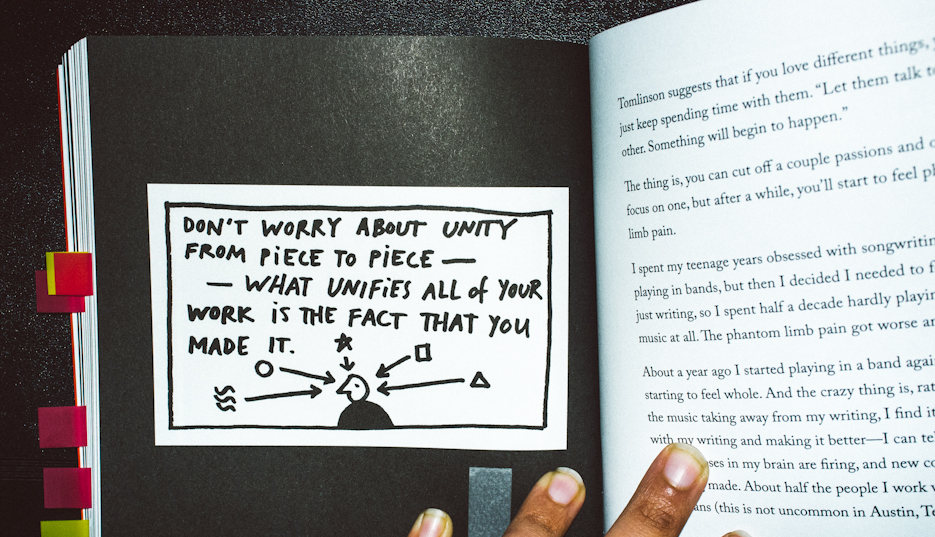 DON'T WORRY ABOUT UNITY
FROM PIECE TO PIECE —
— WHAT UNIFIES ALL of YOUR
WORK IS THE FACT THAT YOU
MADE IT.
Tomlinson suggests that if you love different things,
just keep spending time with them. “Let them talk
other. Something will begin to happen.”
The thing is, you can cut off a couple passions and
focus on one, but after a while, you’ll start to feel
limb pain.
I spent my teenage years obsessed with
playing in bands, but then I decided I needed to
just writing, so I spent half a decade hardly
music at all. The phantom limb pain got worse
About a year ago I started playing in a band
starting to feel whole. And the crazy thing is,
the music taking away from my writing, I find
with my writing and making it better—I can
in my brain are firing, and new
made. About half the people I work
(this is not uncommon in Austin,